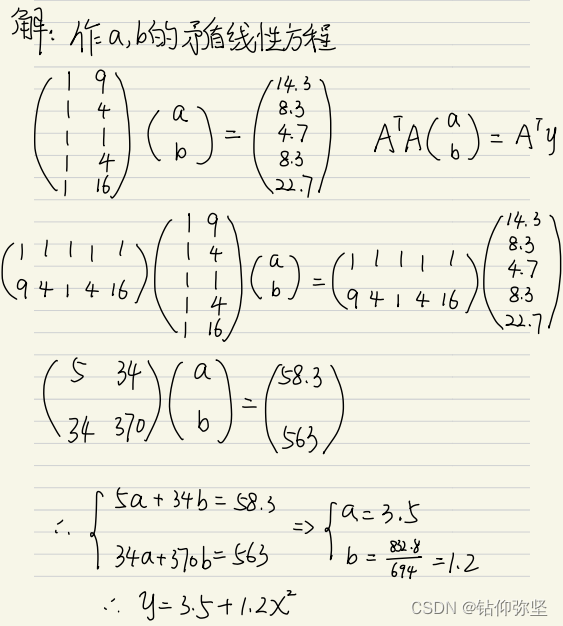 解: 作a,b的矛盾线性方程
(1 9; 1 4; 1 1; 1 4; 1 16) (a; b) = (14.3; 8.3; 4.7; 8.3; 22.7)   AᵀA (a; b) = Aᵀy
(1 1 1 1 1; 9 4 1 4 16) (1 9; 1 4; 1 1; 1 4; 1 16) (a; b) = (1 1 1 1 1; 9 4 1 4 16) (14.3; 8.3; 4.7; 8.3; 22.7)
(5 34; 34 370) (a; b) = (58.3; 563)
∴ { 5a + 34b = 58.3 ⇒ { a = 3.5
34a+370b = 563   b = 832.8/694 = 1.2
∴ y = 3.5 + 1.2x²
CSDN @钻仰弥坚